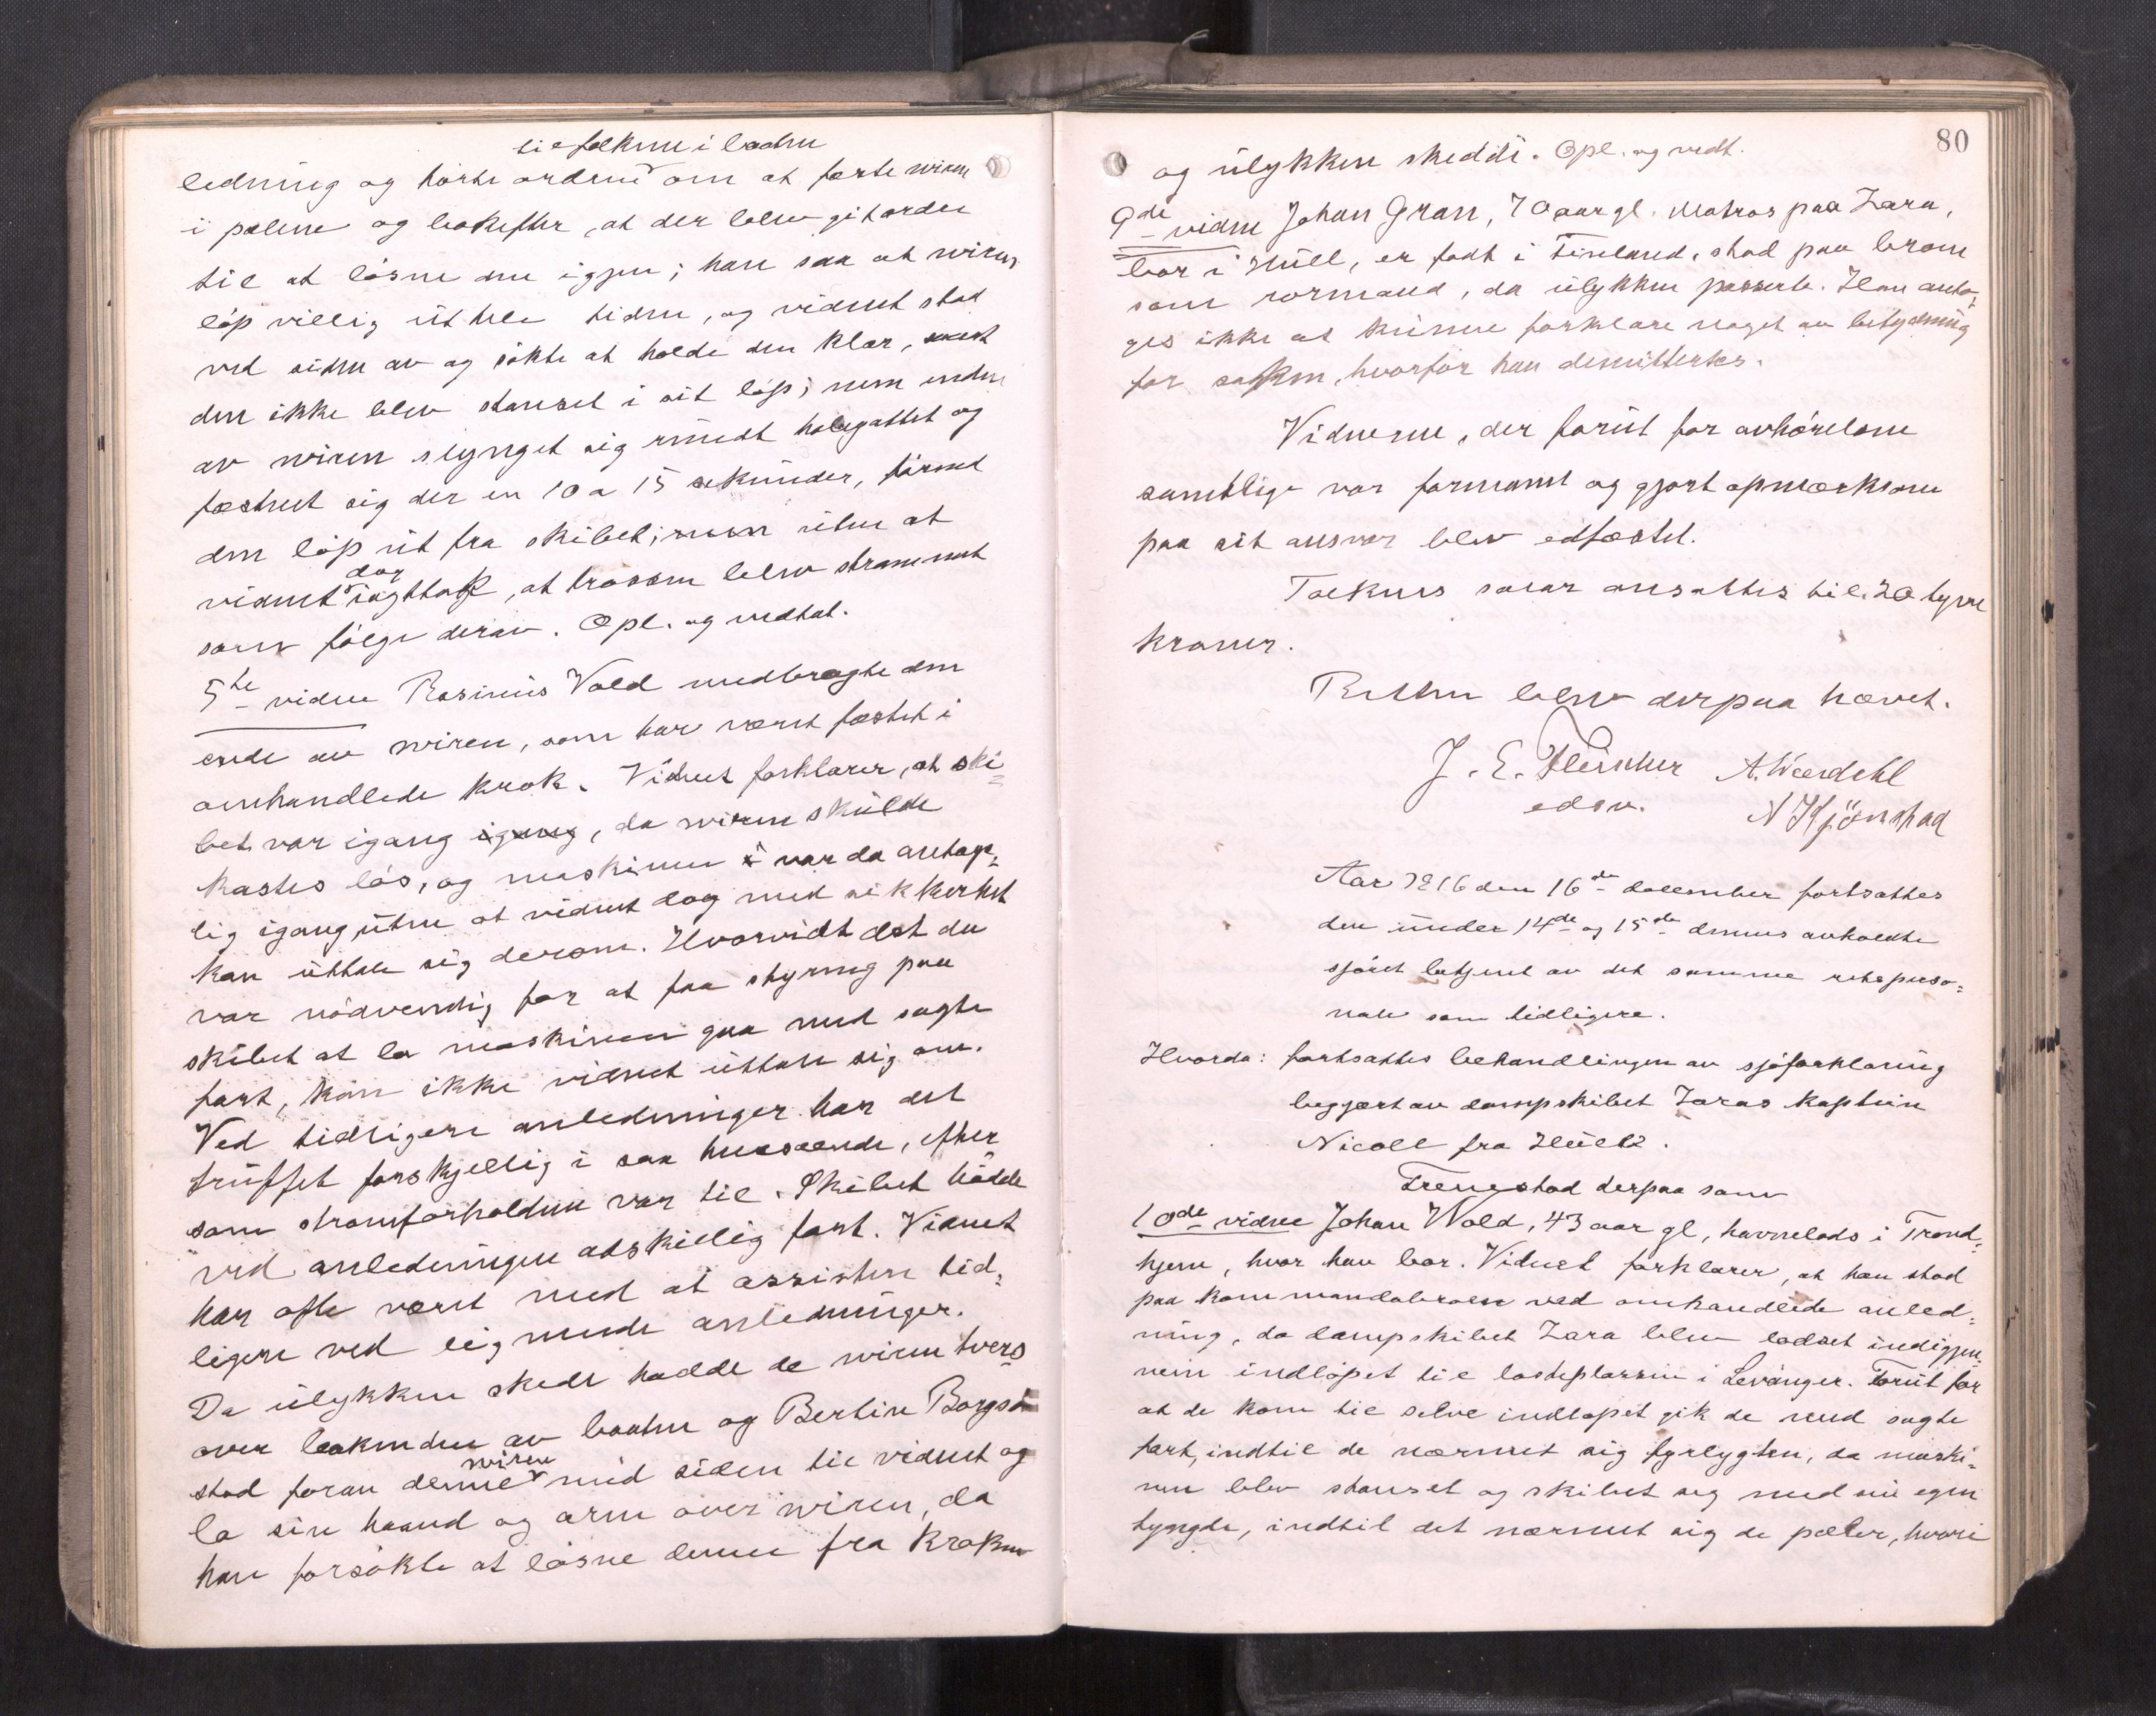 til folkene i baaten
ledning og hørte ordren om at fæste wiren
i pælene og bakefter, at der blev git ordre
til at løsne den igjen; han saa at wiren
løp villig ut hele tiden, og vidnet stod
ved siden av og søkte at holde den klar, saa at
den ikke blev stanset i sit løp; men enden
av wiren slynget sig rundt halegattet og
fæstnet sig der en 10 a 15 sekunder, førend
den løp ut fra skibet; men uten at
dog
vidnet iagttok, at trossen blev strammet
som følge derav. Opl. og vedtat.
5te vidne Rasinus Vold medbragte den
ende av wiren, som har været fæstet i
omhandlede krok. Vidnet forklarer, at ski=
bet var igang igang, da wiren skulde
kastes løs, og maskinen i var da antage=
lig igang, uten at vidnet dog med sikkerhet
kan uttale sig derom. Hvorvidt det da
var nødvendig for at faa styring paa
skibet at la maskinen gaa med sagte
fart, kan ikke vidnet uttale sig om.
Ved tidligere anledninger har det
truffet forskjellig i saa henseende, efter
som strømforholdene var til. Skibet hadde
ved anledningen adskillig fart. Vidnet
har ofte været med at assistere tid=
ligere ved lignende anledninger.
Da ulykken skede hadde de wiren tvers
over bakenden av baaten og Bertin Borgsø
wiren
stod foran denne med siden til vidnet og
la sin haand og arm over wiren, da
han forsøkte at løsne denne fra kroken
80
og ulykken skedde. Opl. og vedt.
9de vidne Johan Gran, 70 aar gl. Matros paa Zara,
bor i Hull, er født i Finland, stod paa broen
som rormand, da ulykken passerte. Han anto=
ges ikke at kunne forklare noget av betydning
for saken, hvorfor han demitteres.
Vidnerne, der forut for avhørelsen
samtlige var formanet og gjort opmerksom
paa sit ansvar blev edfæstet.
Tolkens salær ansattes til 20 tyve
kroner.
Retten blev derpaa hævet.
J. E. Fleischer A. Wendehl
edsv. N Kjönstad
Aar 1916 den 16de december fortsattes
den under 14de og 15de dennes avholdte
sjøret betjent av det samme retsperso=
nale som tidligere.
Hvorda: fortsattes behandlingen av sjøforklaring
begjært av dampskibet Zaras kaptein
Nicoll fra Hull.
Fremstod derpaa som
10de vidne Johan Wold, 43 aar gl, havnelods i Trond=
hjem, hvor han bor. Vidnet forklarer, at han stod
paa kommandobroen ved omhandlede anled=
ning, da dampskibet Zara blev lodset indigjen=
nem indløpet til lasteplassen i Levanger. Forut for
at de kom til selve indløpet gik de med sagte
fart, indtil de nærmet sig fyrlygten, da maski=
nen blev stanset og skibet seg med sin egen
tyngde, indtil det nærmet sig de pæler, hvori